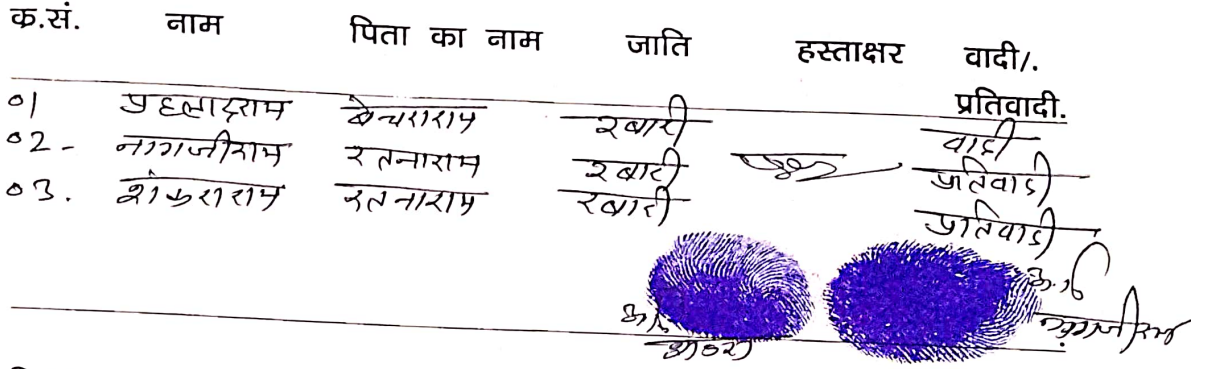 क.सं. नाम पिता का नाम जाति हस्ताक्षर वादी/.
प्रतिवादी.
01 प्रहलादराम बेचराराम रबारी वादी
02- नागजीराम रतनाराम रबारी प्रतिवादी
03. शंकराराम रतनाराम रबारी प्रतिवादी
नागजीराम